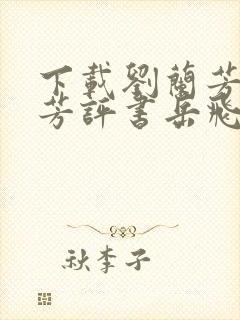 下載劉蘭芳
芳評書岳飛
秋李子